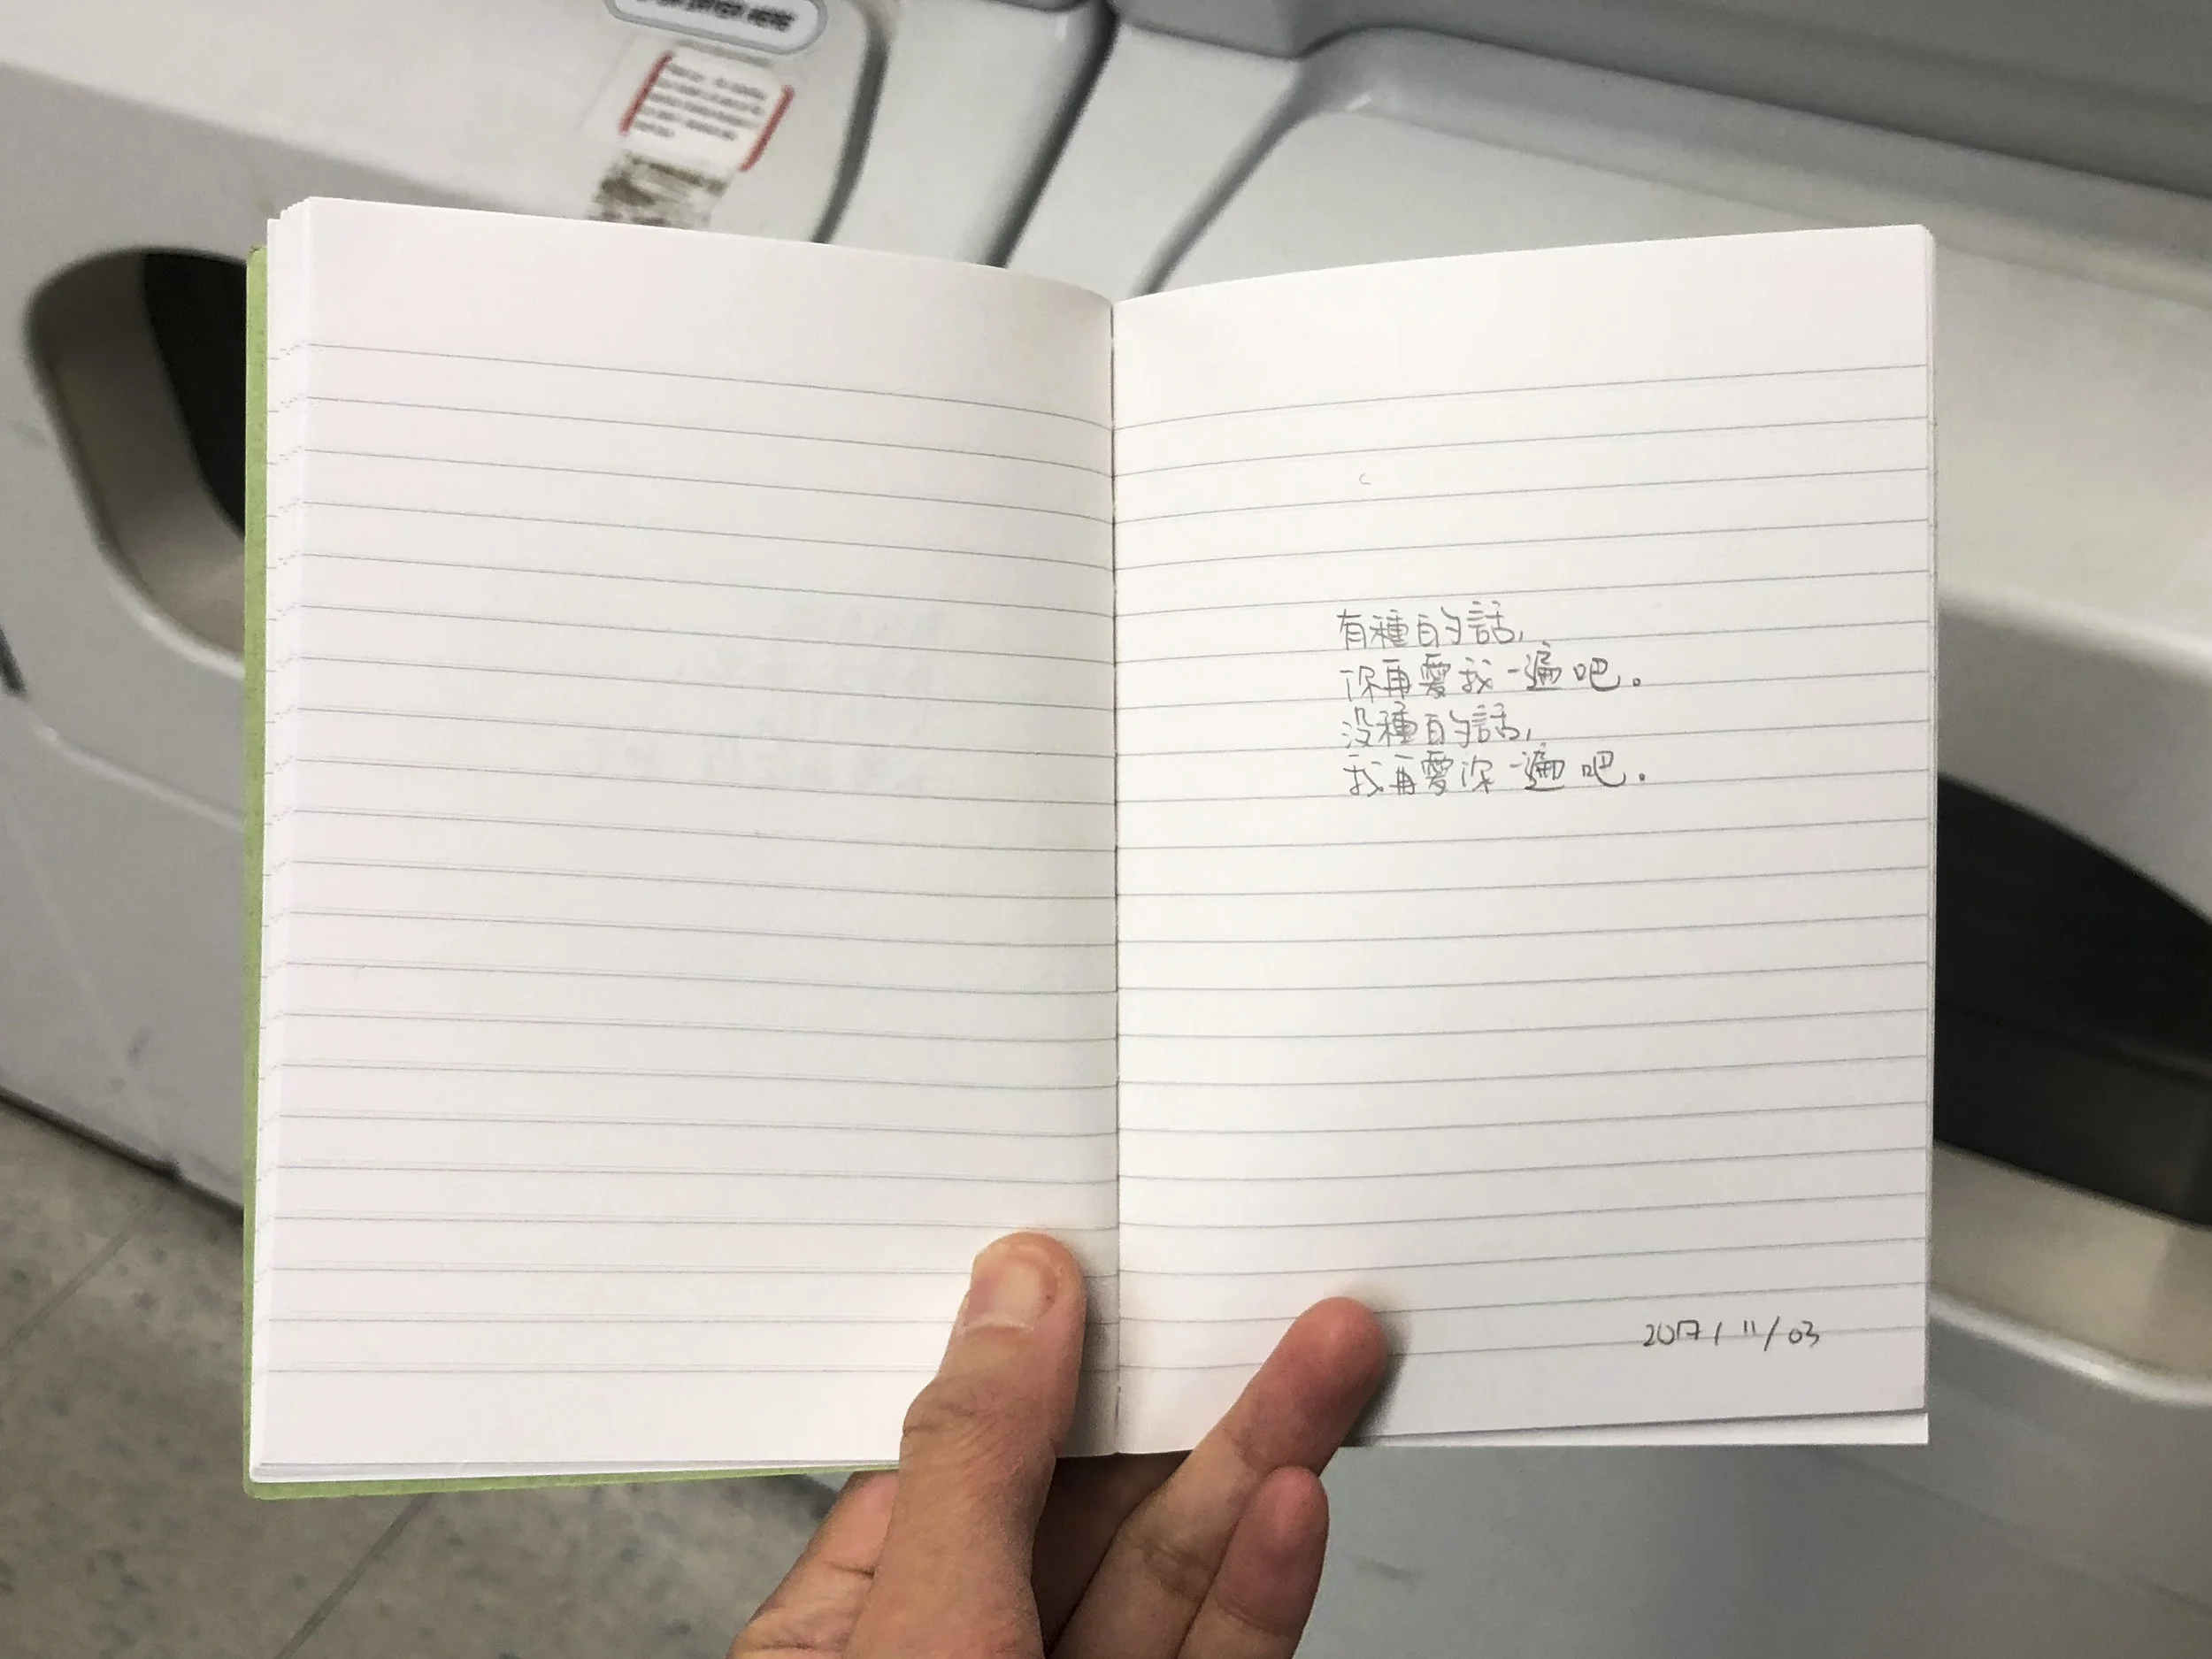 有種的話,
你再愛我一遍吧。
没種的話,
我再愛你一遍吧。
2017/11/03